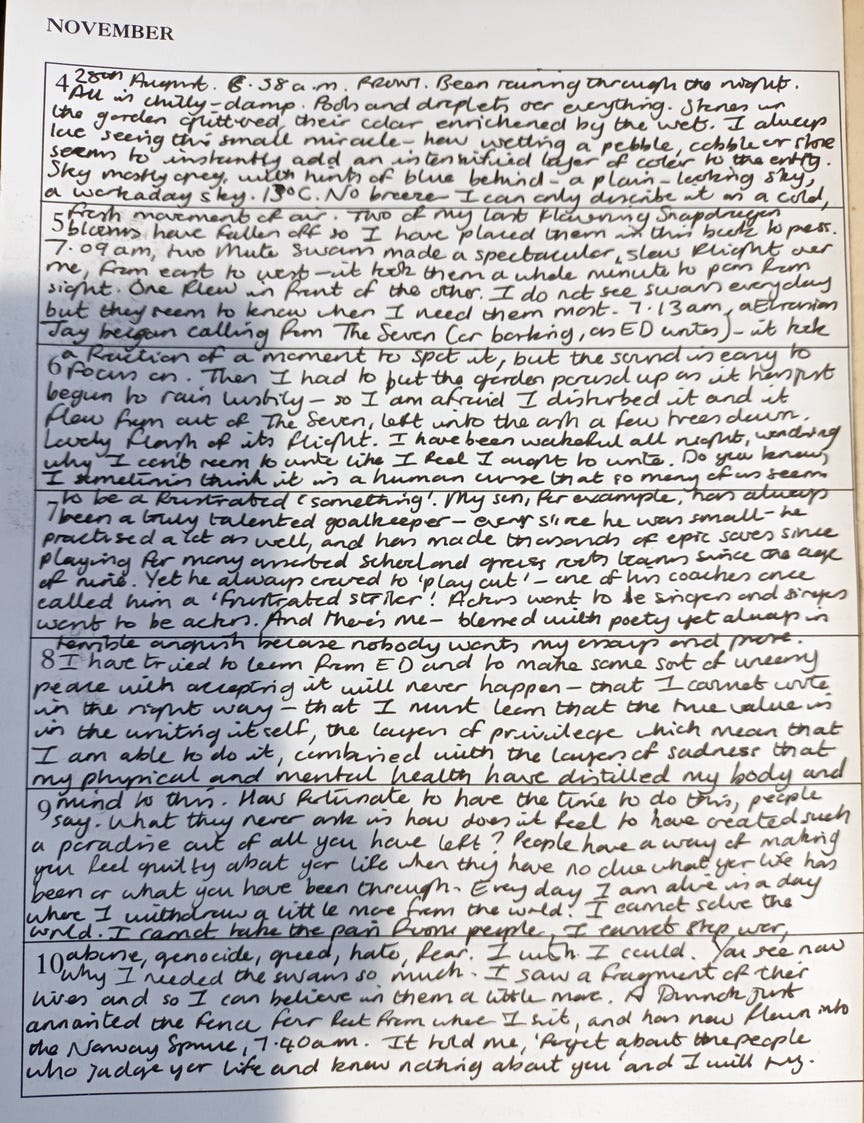 NOVEMBER
4 28th August. 6.38a.m. FRONT. Been raining through the night.
All is chilly-damp. Pools and droplets over everything. Stones in
the garden glittered, their color enrichened by the wet. I always
love seeing this small miracle – how wetting a pebble, cobble or stone
seems to instantly add an intensified layer of color to the entity.
Sky mostly grey, with hints of blue behind – a plain-looking sky,
a workaday sky. 13°C. No breeze – I can only describe it as a cold,
5 fresh movement of air. Two of my last flowering Snapdragon
blooms have fallen off so I have placed them in this book to press.
7.09am, two Mute Swans made a spectacular, slow flight over
me, from east to west – it took them a whole minute to pass from
sight. One flew in front of the other. I do not see swans everyday
but they seem to know when I need them most. 7.13am, a Eurasian
Jay began calling from The Seven (or barking, as ED writes) – it took
6 a fraction of a moment to spot it, but the sound is easy to
focus on. Then I had to put the garden parasol up as it has just
begun to rain lustily – so I am afraid I disturbed it and it
flew from out of The Seven, left into the ash a few trees down.
Lovely flash of its flight. I have been wakeful all night, wondering
why I can't seem to write like I feel I ought to write. Do you know,
I sometimes think it is a human curse that so many of us seem
7 to be a frustrated 'something'. My son, for example, has always
been a truly talented goalkeeper – ever since he was small – he
practised a lot as well, and has made thousands of epic saves since
playing for many assorted school and grass roots teams since the age
of nine. Yet he always craved to 'play out' – one of his coaches once
called him a 'frustrated striker'! Actors want to be singers and singers
want to be actors. And there's me – blessed with poetry yet always in
terrible anguish because nobody wants my essays and prose.
8 I have tried to learn from ED and to make some sort of uneasy
peace with accepting it will never happen – that I cannot write
in the right way – that I must learn that the true value is
in the writing itself, the layers of privilege which mean that
I am able to do it, combined with the layers of sadness that
my physical and mental health have distilled my body and
9 mind to this. How fortunate to have the time to do this, people
say. What they never ask is how does it feel to have created such
a paradise out of all you have left? People have a way of making
you feel guilty about your life when they have no clue what your life has
been or what you have been through. Every day I am alive is a day
where I withdraw a little more from the world. I cannot solve the
world. I cannot take the pain from people, I cannot stop war,
10 abuse, genocide, greed, hate, fear. I wish I could. You see now
why I needed the swans so much. I saw a fragment of their
lives and so I can believe in them a little more. A Dunnock just
annointed the fence four feet from where I sit, and has now flown into
the Norway Spruce, 7.40am. It told me, 'forget about the people
who judge your life and know nothing about you' and I will try.